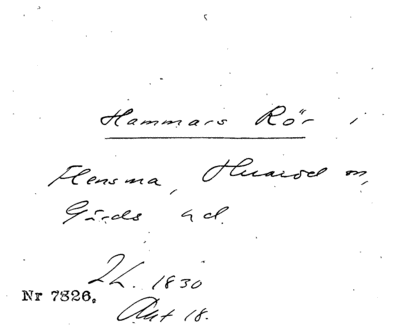 Hammars Rör i
Flensma, Huaröd sn,
Gärds hd.
2L. 1830
Nr 7826.
Akt 18.